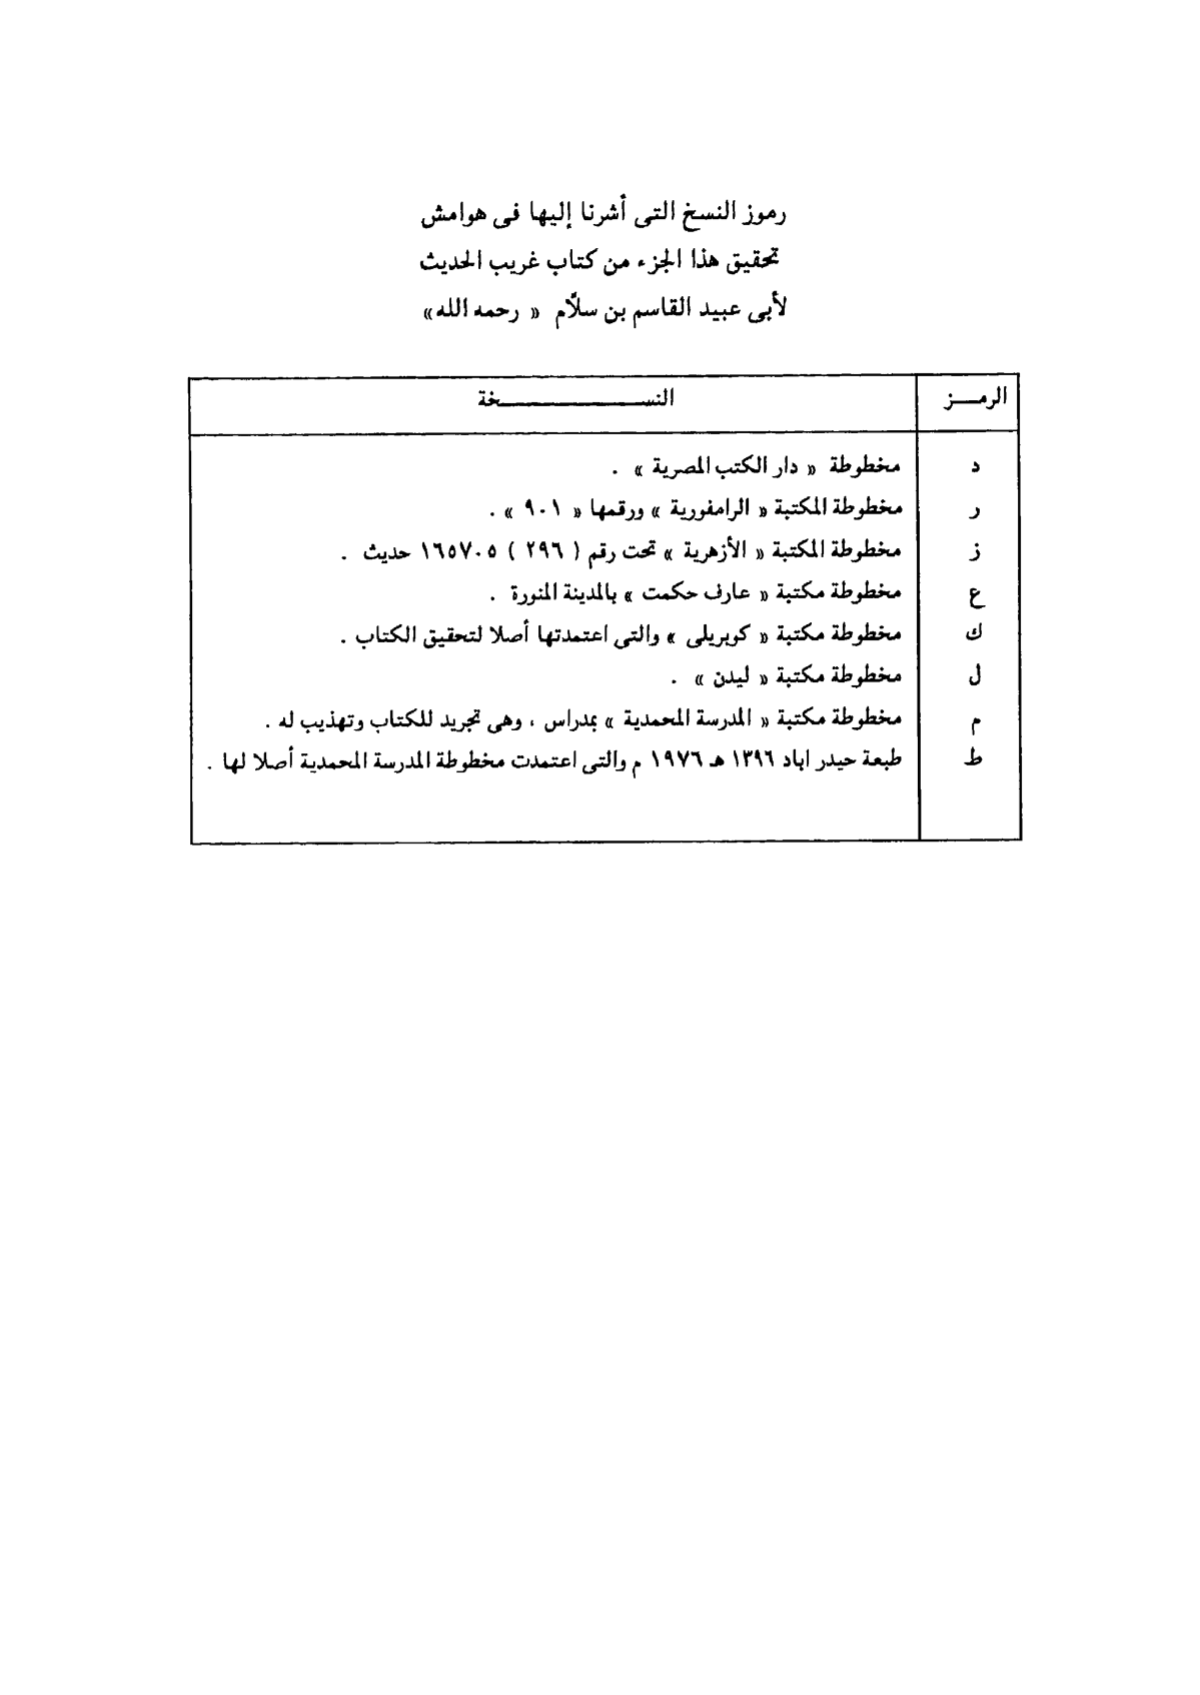 رموز النسخ التى أشرنا إليها فى هوامش
تحقيق هذا الجزء من كتاب غريب الحديث
لأبى عبيد القاسم بن سلَّام « رحمه الله»
الرمـــز النســـــــــــــــخة
د مخطوطة « دار الكتب المصرية » .
ر مخطوطة المكتبة « الرامفورية » ورقمها « ٩٠١ » .
ز مخطوطة المكتبة « الأزهرية » تحت رقم ( ٢٩٦ ) ١٦٥٧٠٥ حديث .
ع مخطوطة مكتبة « عارف حكمت » بالمدينة المنورة .
ك مخطوطة مكتبة « كوبريلى » والتى اعتمدتها أصلا لتحقيق الكتاب .
ل مخطوطة مكتبة « ليدن » .
م مخطوطة مكتبة « المدرسة المحمدية » بمدراس ، وهى تجريد للكتاب وتهذيب له .
ط طبعة حيدر اباد ١٣٩٦ هـ ١٩٧٦ م والتى اعتمدت مخطوطة المدرسة المحمدية أصلا لها .